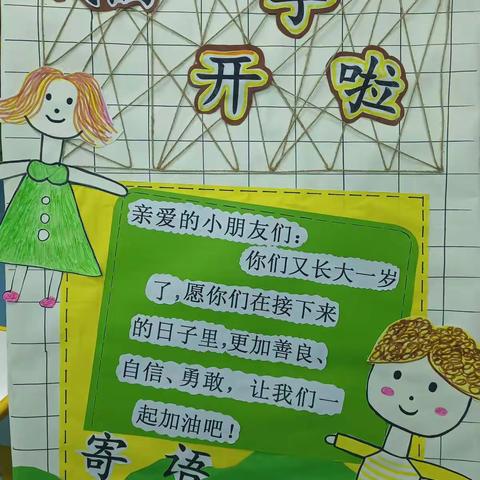 学
开啦
亲爱的小朋友们：
你们又长大一岁
了，愿你们在接下来
的日子里，更加善良、
自信、勇敢， 让我们一
起加油吧！
寄语